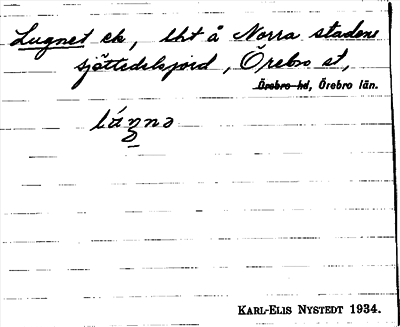 Lugnet ek, lht å Norra stadens
sjöttedelsjord, Örebro st,
Örebro hd, Örebro län.
Karl-Elis Nystedt 1934.